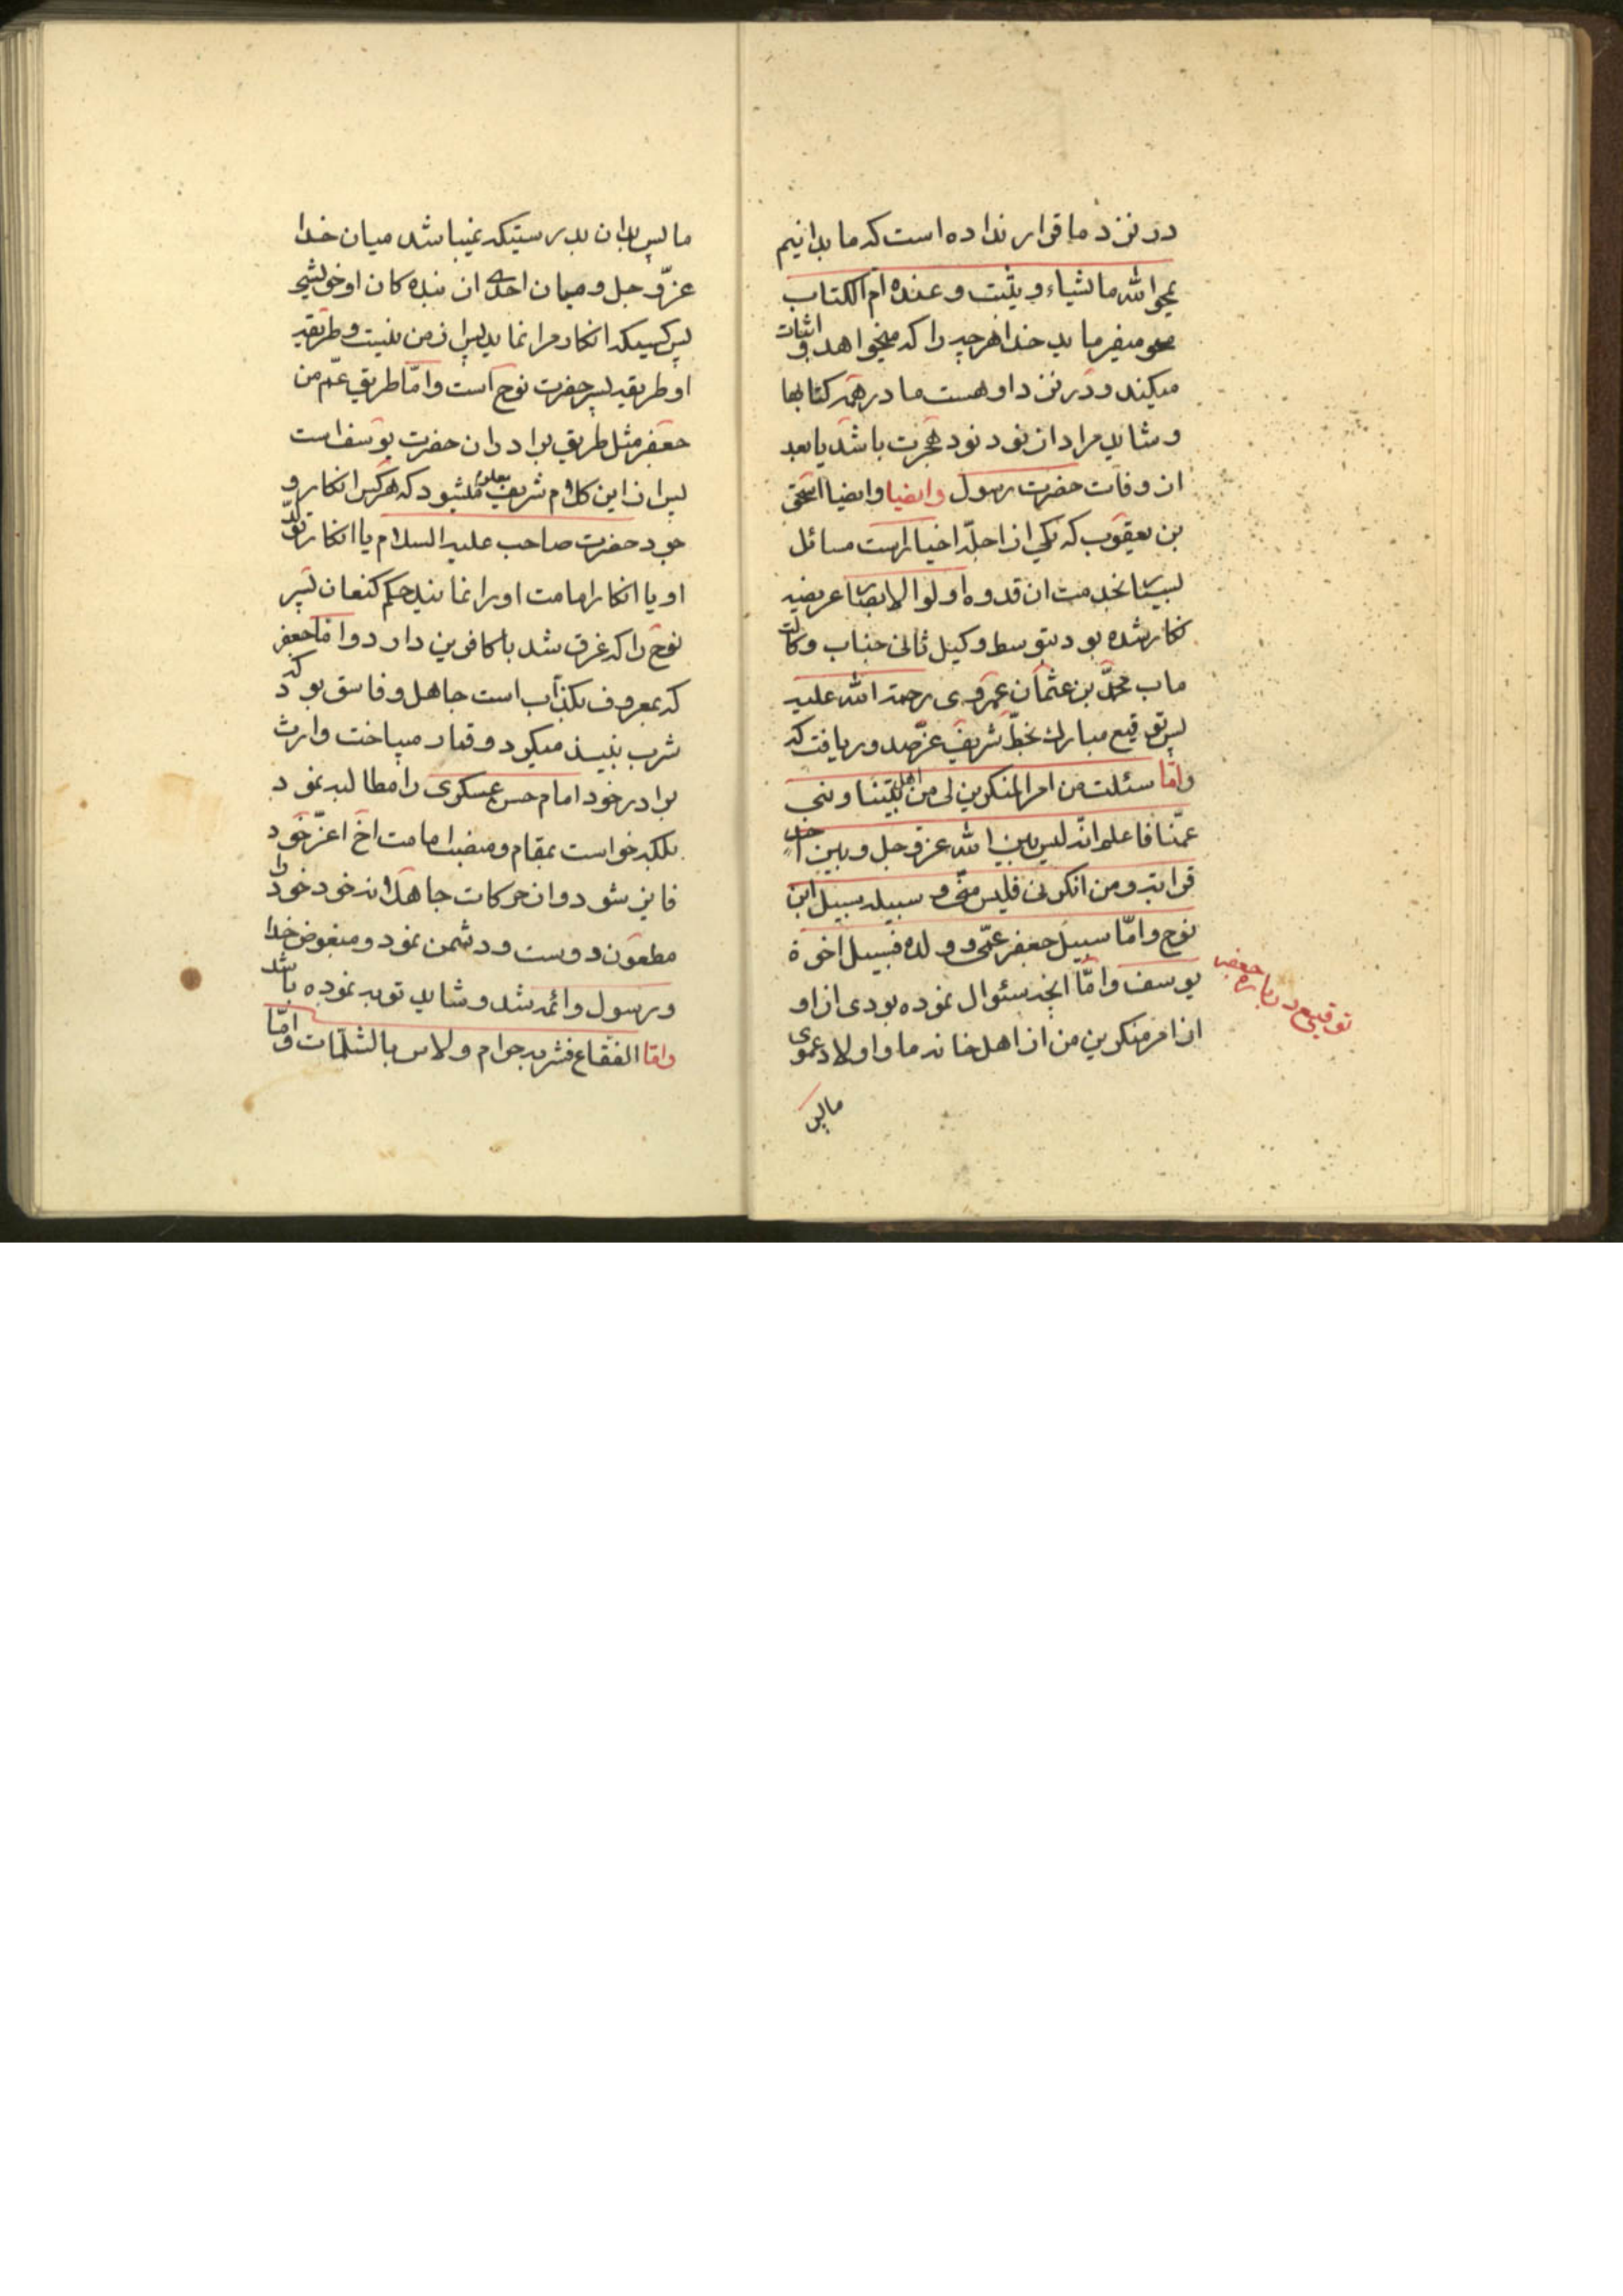 در نزد ما قرار نداده است که ما بدانیم
یمحو الله ما یشاء و یثبت و عنده ام الکتاب
محو میفرماید خدا هر چیز را که میخواهد و اثبات
میکند و در نزد او هست مادر همه کتابها
و شاید مراد از نود نود هجرت باشد یا بعد
از وفات حضرت رسول وایضا وایضا اسحق
بن یعقوب که یکی از اجلّه اخیار است مسائل
بسیار بخدمت ان قدوه اولوا الابصار عریضه
نگار شده بود بتوسط وکیل ثانی جناب وکالت
ماب محمّد بن عثمان عمروی رحمة الله علیه
پس توقیع مبارک بخطّ شریف عزّ صدور یافت که
وامّا سئلت من امر المنکرین لی من اهل بیتنا و بنی
عمّنا فاعلم انّه لیس بین الله عزّ و جل و بین احد
قرابة و من انکرنی فلیس منّی و سبیله سبیل ابن
نوح وامّا سبیل جعفر عمّی و ولده فسبیل اخوة
یوسف وامّا انچه سئوال نموده بودی از او
از امر منکرین من از اهل خانه ما و اولاد عموی
ما پس
توقیع در باره جعفر
ما پس بدان بدرستیکه نمیباشد میان خدا
عزّ و جل و میان احدی از بنده کان او خویشی
پس کسیکه انکار مرا نماید پس از من نیست و طریقه
او طریقه پسر حضرت نوح است وامّا طریق عمّ من
جعفر مثل طریق برادران حضرت یوسف است
پس از این کلام شریف معلوم میشود که هر کس انکار و
جود حضرت صاحب علیه السلام یا انکار تولّد
او یا انکار امامت او را نمایند حکم کنعان پسر
نوح را که غرق شد با کافرین دارد وامّا جعفر
که معروف بکذّاب است جاهل و فاسق بود که
شرب نبیذ میکرد و قمار میباخت وارث
برادر خود امام حسن عسکری را مطالبه نمود
بلکه خواست بمقام و منصب امامت اخ اعزّ خود
فایز شود و از حرکات جاهلانه خود خود را
مطعون دوست و دشمن نمود و مبغوض خدا
و رسول وائمه شد و شاید توبه نموده باشد
وامّا الفقاع فشربه حرام ولاس بالشلمات وامّا